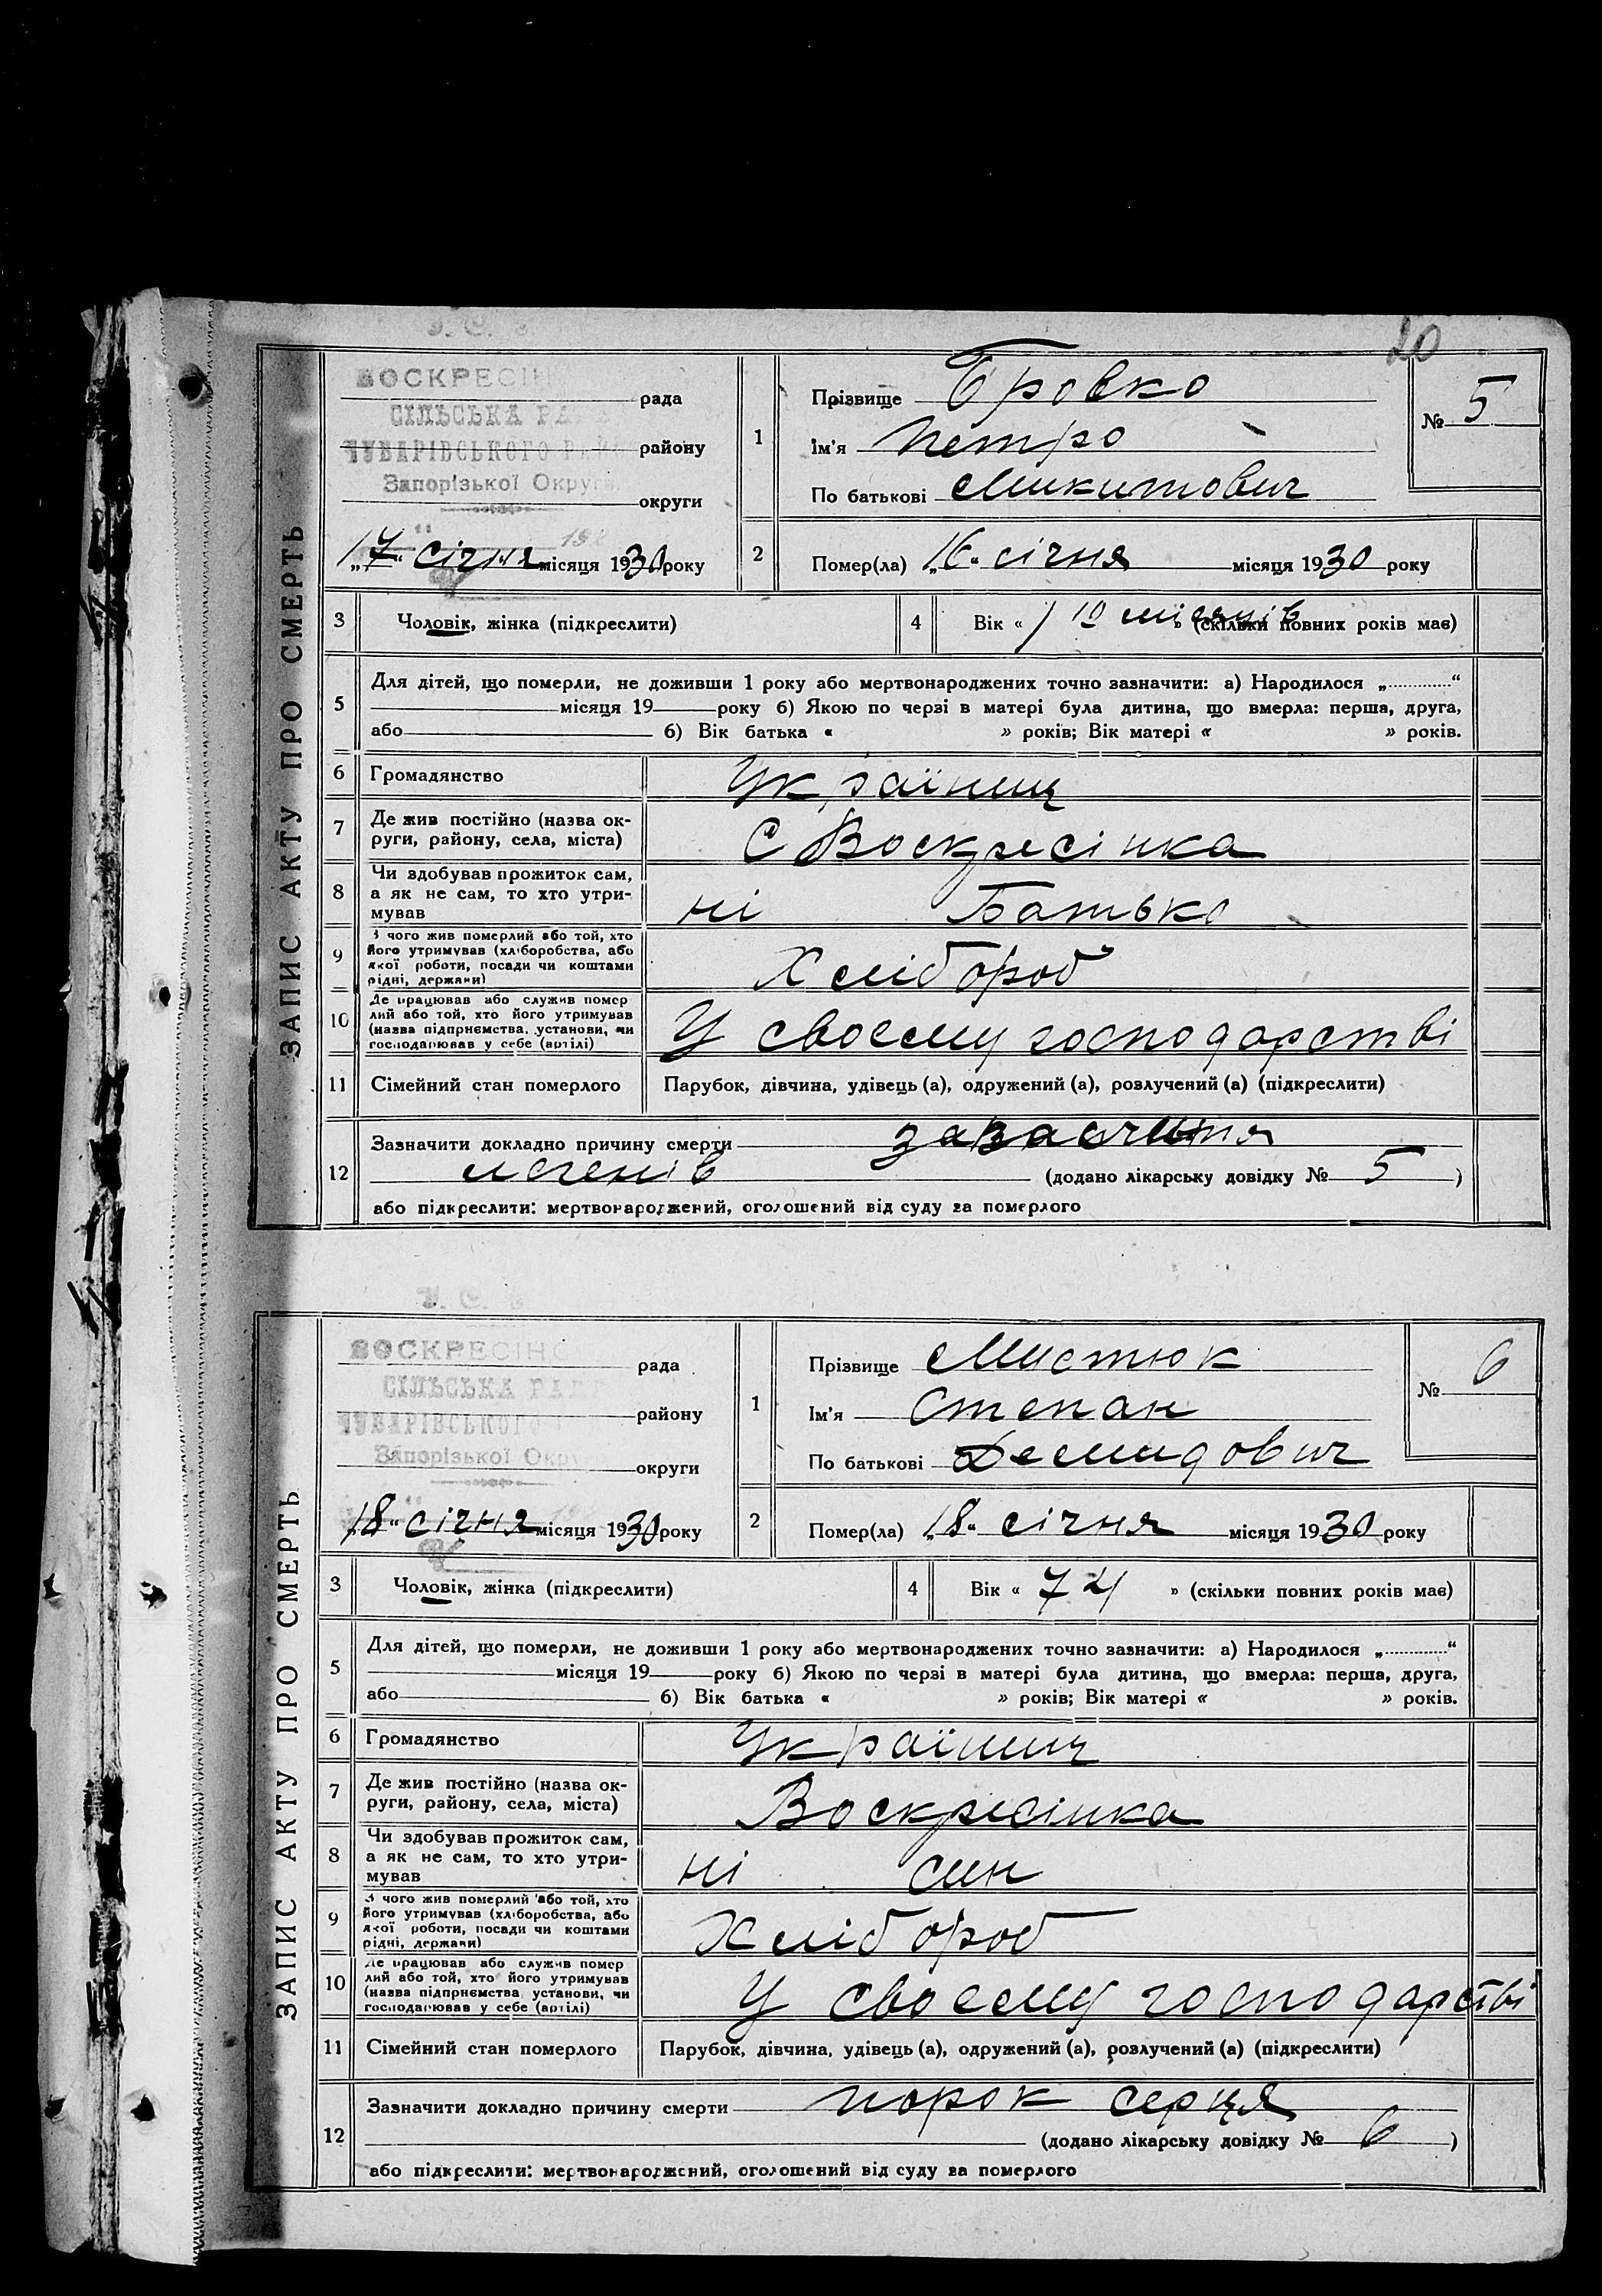 20
ЗАПИС АКТУ ПРО СМЕРТЬ
ВОСКРЕСІН
рада
СІЛЬСЬКА РА
ЧУБАРІВСЬКОГО РАЙ
району
Запорізької Округи
округи
„17“ січня місяця 1930 року
1
Прізвище Бровко
Ім'я Петро
По батькові Микитович
№ 5
2
Помер(ла) „16“ січня місяця 1930 року
3 Чоловік, жінка (підкреслити)
4 Вік « 1 10 місяців » (скільки повних років має)
5 Для дітей, що померли, не доживши 1 року або мертвонароджених точно зазначити: а) Народилося „............“
місяця 19 року б) Якою по черзі в матері була дитина, що вмерла: перша, друга,
або б) Вік батька « » років; Вік матері « » років.
6 Громадянство Українец
7 Де жив постійно (назва ок-
руги, району, села, міста) С Воскресінка
8 Чи здобував прожиток сам,
а як не сам, то хто утри-
мував ні Батько
9 З чого жив померлий або той, хто
його утримував (хліборобства, або
якої роботи, посади чи коштами
рідні, держави) Хлібороб
10 Де працював або служив помер
лий або той, хто його утримував
(назва підприємства, установи, чи
господарював у себе (артілі) У своєму господарстві
11 Сімейний стан померлого Парубок, дівчина, удівець (а), одружений (а), розлучений (а) (підкреслити)
12 Зазначити докладно причину смерти
легенів (додано лікарську довідку № 5 )
або підкреслити: мертвонароджений, оголошений від суду за померлого
ЗАПИС АКТУ ПРО СМЕРТЬ
ВОСКРЕСІНС
рада
СІЛЬСЬКА РАД
ЧУБАРІВСЬКОГО
району
Запорізької Окру
округи
„18“ січня місяця 1930 року
1
Прізвище Мистюк
Ім'я Степан
По батькові Демидович
№ 6
2
Помер(ла) „18“ січня місяця 1930 року
3 Чоловік, жінка (підкреслити)
4 Вік « 74 » (скільки повних років має)
5 Для дітей, що померли, не доживши 1 року або мертвонароджених точно зазначити: а) Народилося „............“
місяця 19 року б) Якою по черзі в матері була дитина, що вмерла: перша, друга,
або б) Вік батька « » років; Вік матері « » років.
6 Громадянство Українец
7 Де жив постійно (назва ок-
руги, району, села, міста) Воскресінка
8 Чи здобував прожиток сам,
а як не сам, то хто утри-
мував ні син
9 З чого жив померлий або той, хто
його утримував (хліборобства, або
якої роботи, посади чи коштами
рідні, держави) Хлібороб
10 Де працював або служив помер
лий або той, хто його утримував
(назва підприємства, установи, чи
господарював у себе (артілі) У своєму господарстві
11 Сімейний стан померлого Парубок, дівчина, удівець (а), одружений (а), розлучений (а) (підкреслити)
12 Зазначити докладно причину смерти порок серця
(додано лікарську довідку № 6 )
або підкреслити: мертвонароджений, оголошений від суду за померлого